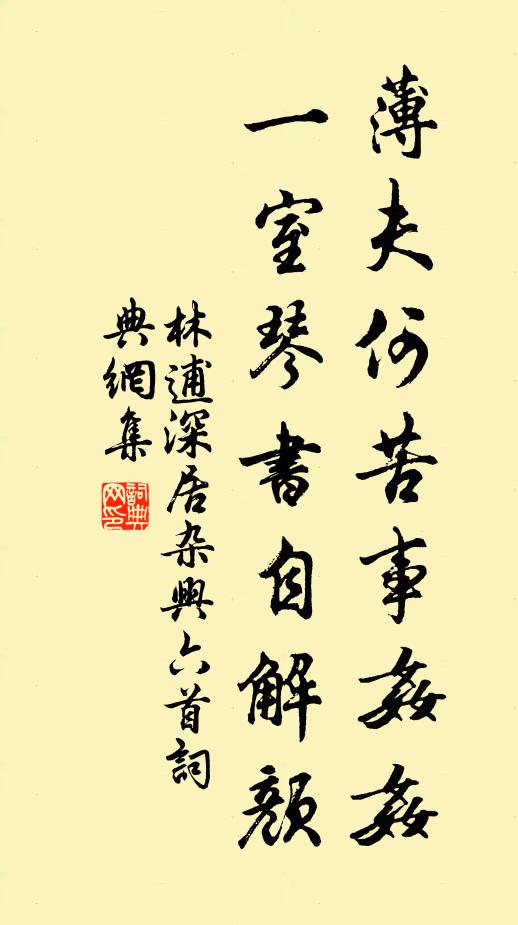 薄夫何苦事姦姦
一室琴書自解顔
林逋深居杂興六首詞
典網集
詞典
网印